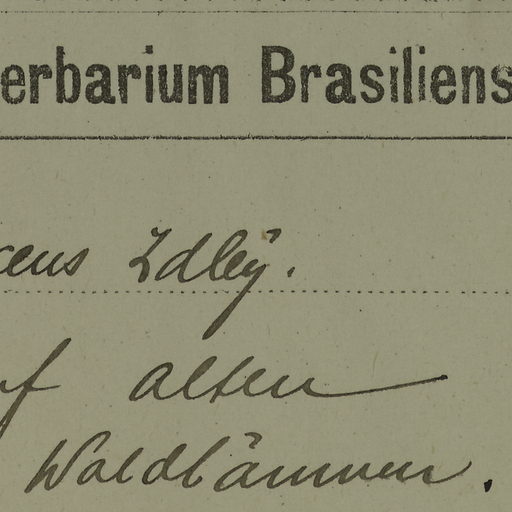 erbarium Brasiliens
ceus Ldlÿ.
uf alten
Waldbäumen.